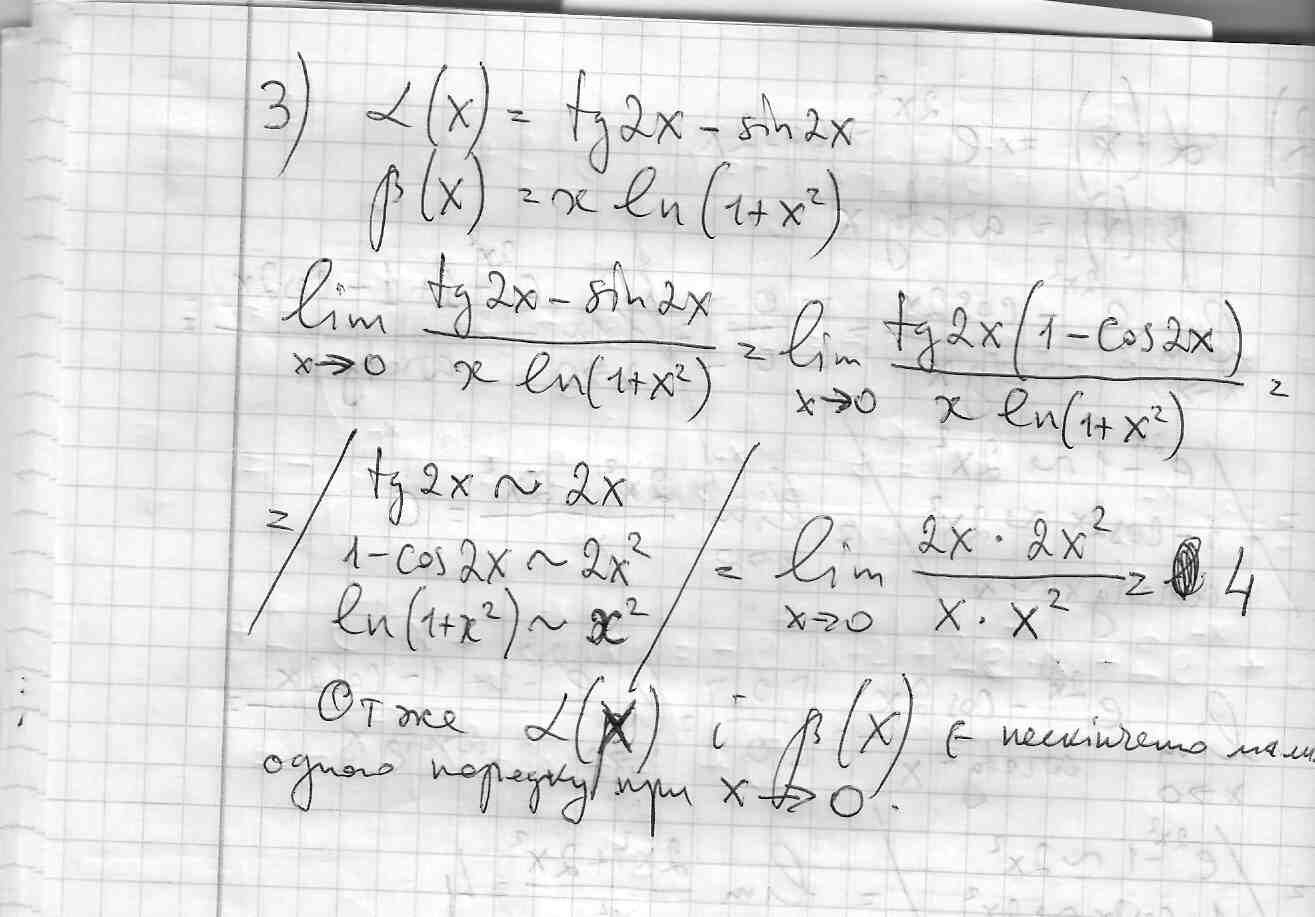 3) α(x) = tg2x - sin2x
β(x) = x ln(1+x²)
lim x→0 (tg2x - sin2x)/(x ln(1+x²)) = lim x→0 (tg2x(1-cos2x))/(x ln(1+x²)) =
= / tg2x ~ 2x
1-cos2x ~ 2x²
ln(1+x²) ~ x² / = lim x→0 (2x · 2x²)/(x · x²) = 4
Отже α(x) і β(x) є нескінченно мали
одного порядку при x→0.